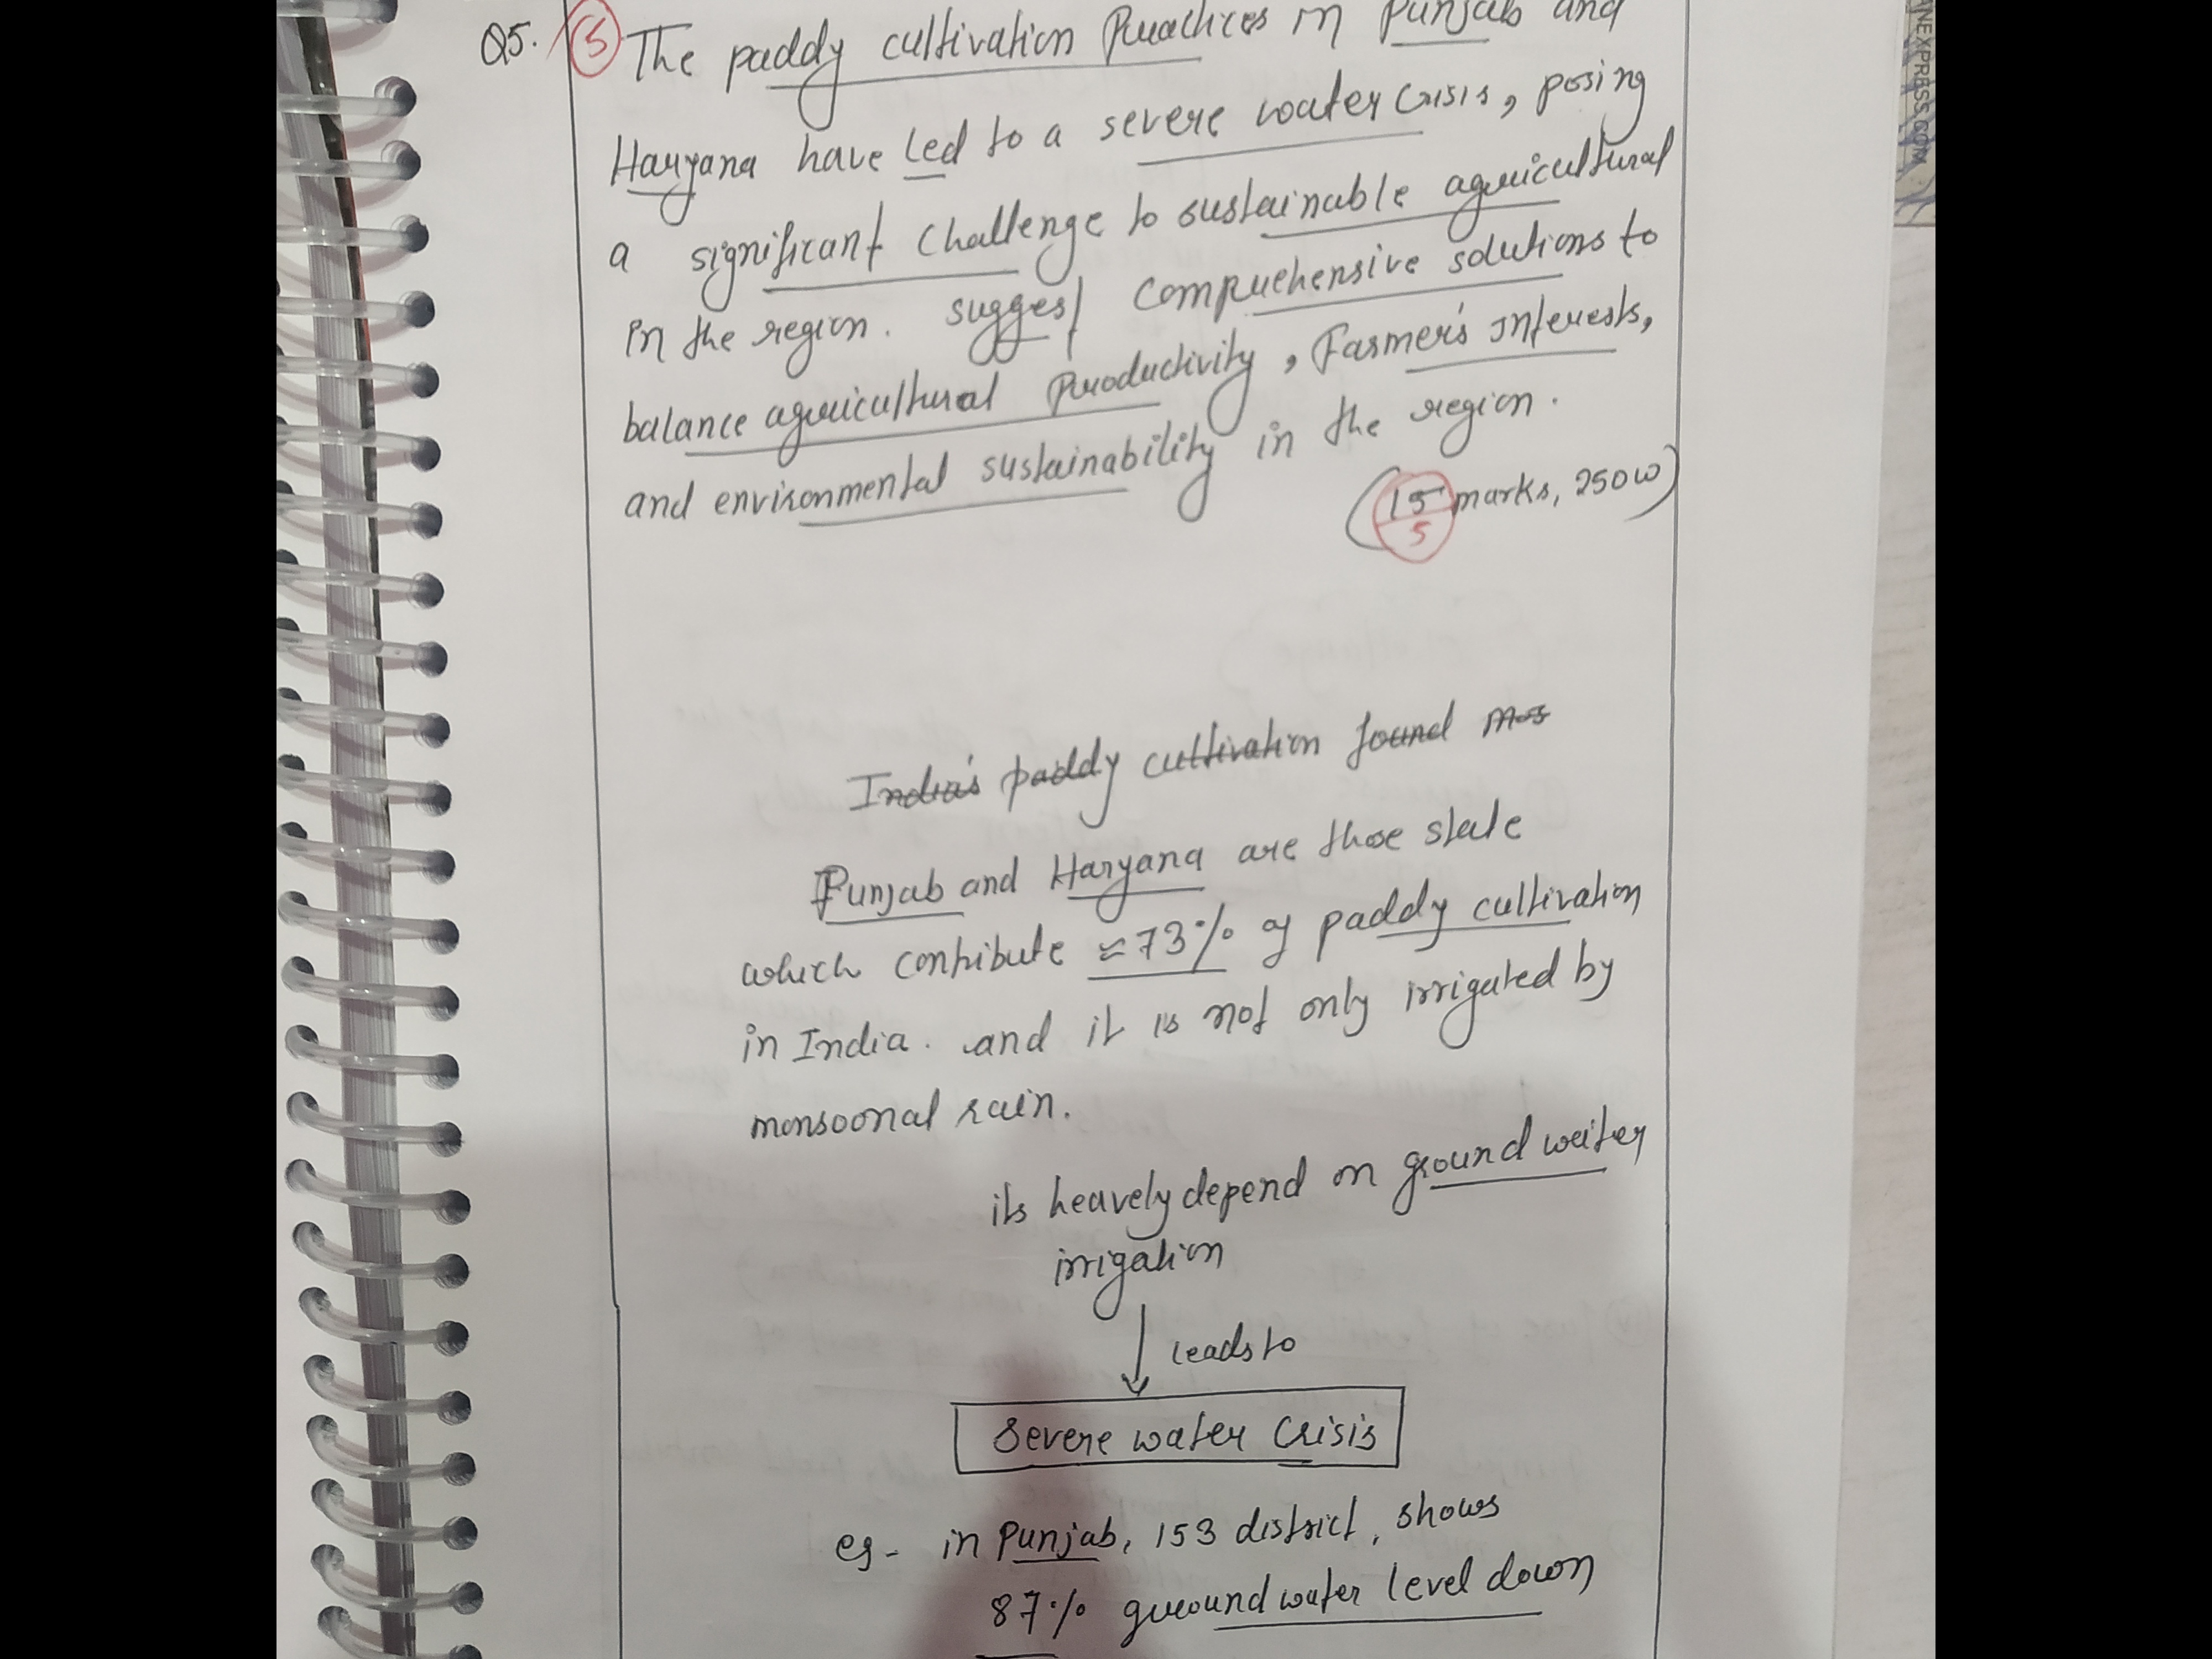 Q5. 5 The paddy cultivation Practices in Punjab and
Haryana have led to a severe water crisis, posing
a significant challenge to sustainable agricultural
in the region. suggest comprehensive solutions to
balance agricultural Productivity, Farmer's Interests,
and environmental sustainability in the region.
(15 marks, 250 w)
5
India's paddy cultivation found mos
Punjab and Haryana are those state
which contribute ≈73% of paddy cultivation
in India. and it is not only irrigated by
monsoonal rain.
its heavely depend on ground water
irrigation
leads to
Severe water Crisis
eg- in Punjab, 153 district, shows
87% ground water level down
NEXPRESS.COM